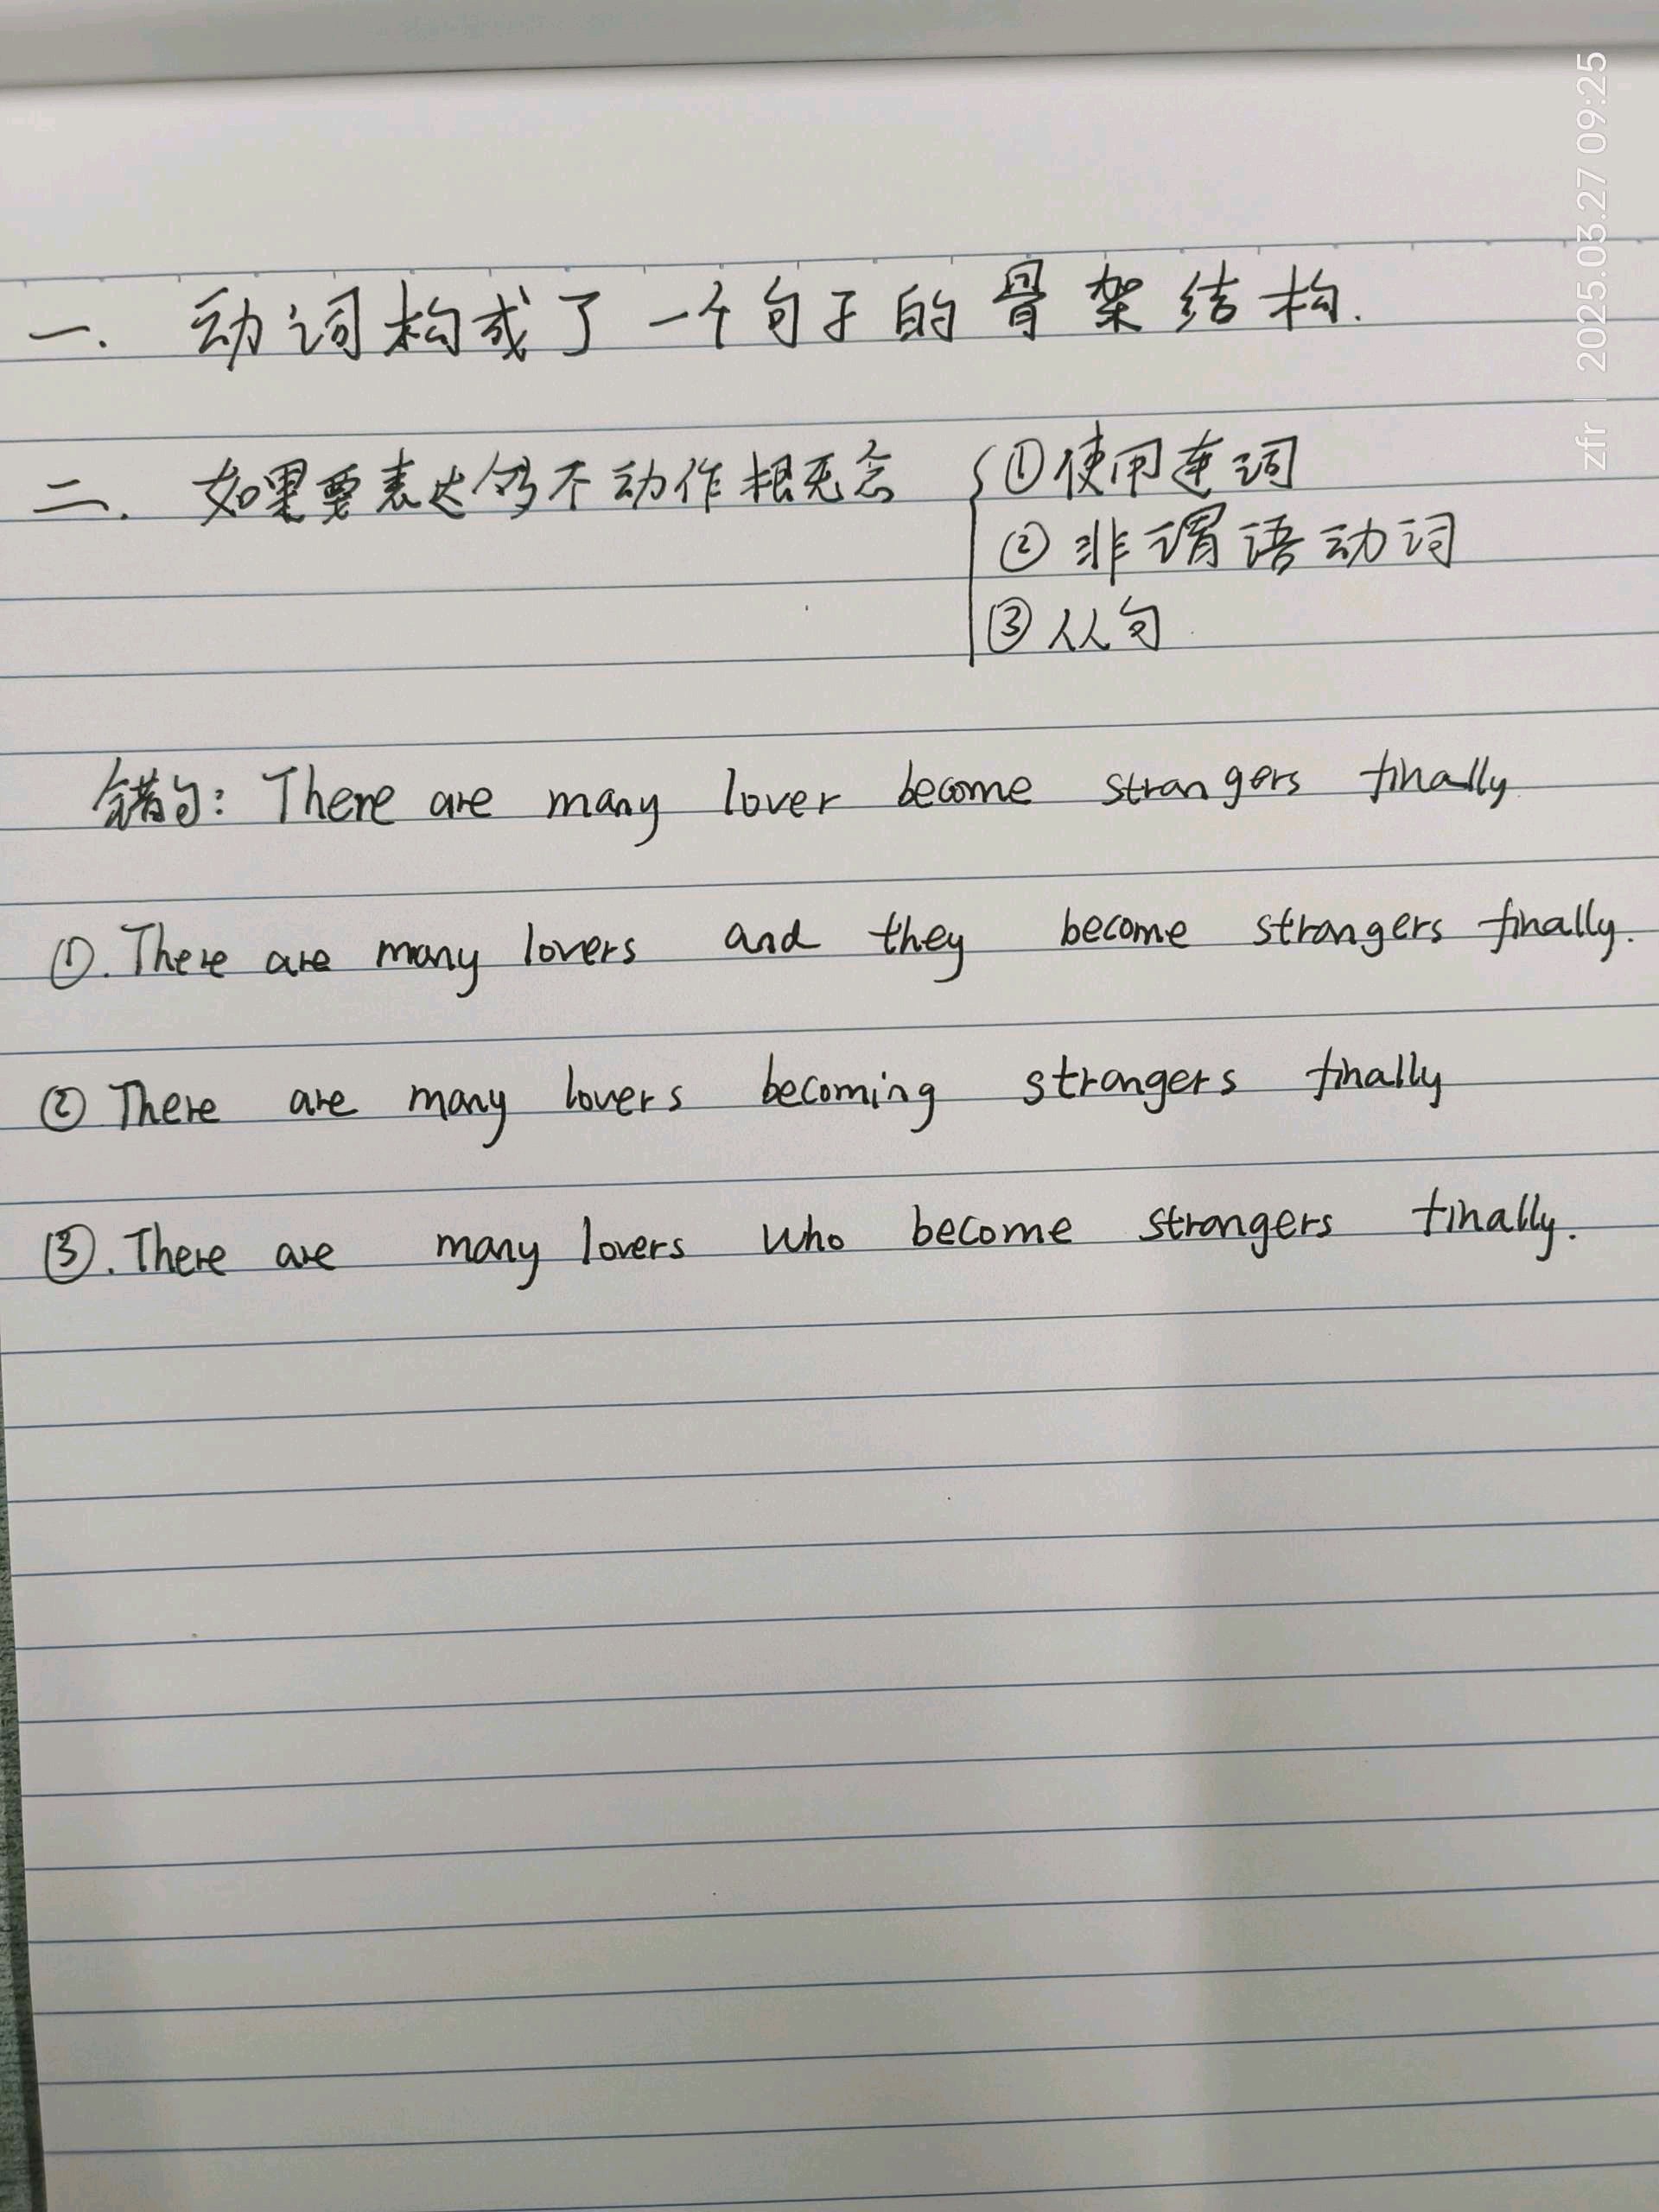 一. 动词构成了一个句子的骨架结构.
二. 如果要表达多个动作概念 ①使用连词
②非谓语动词
③从句
错句: There are many lover become strangers finally
①. There are many lovers and they become strangers finally.
② There are many lovers becoming strangers finally
③. There are many lovers who become strangers finally.
zfr | 2025.03.27 09:25